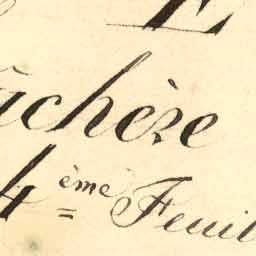 E
achère
4ème Feuil